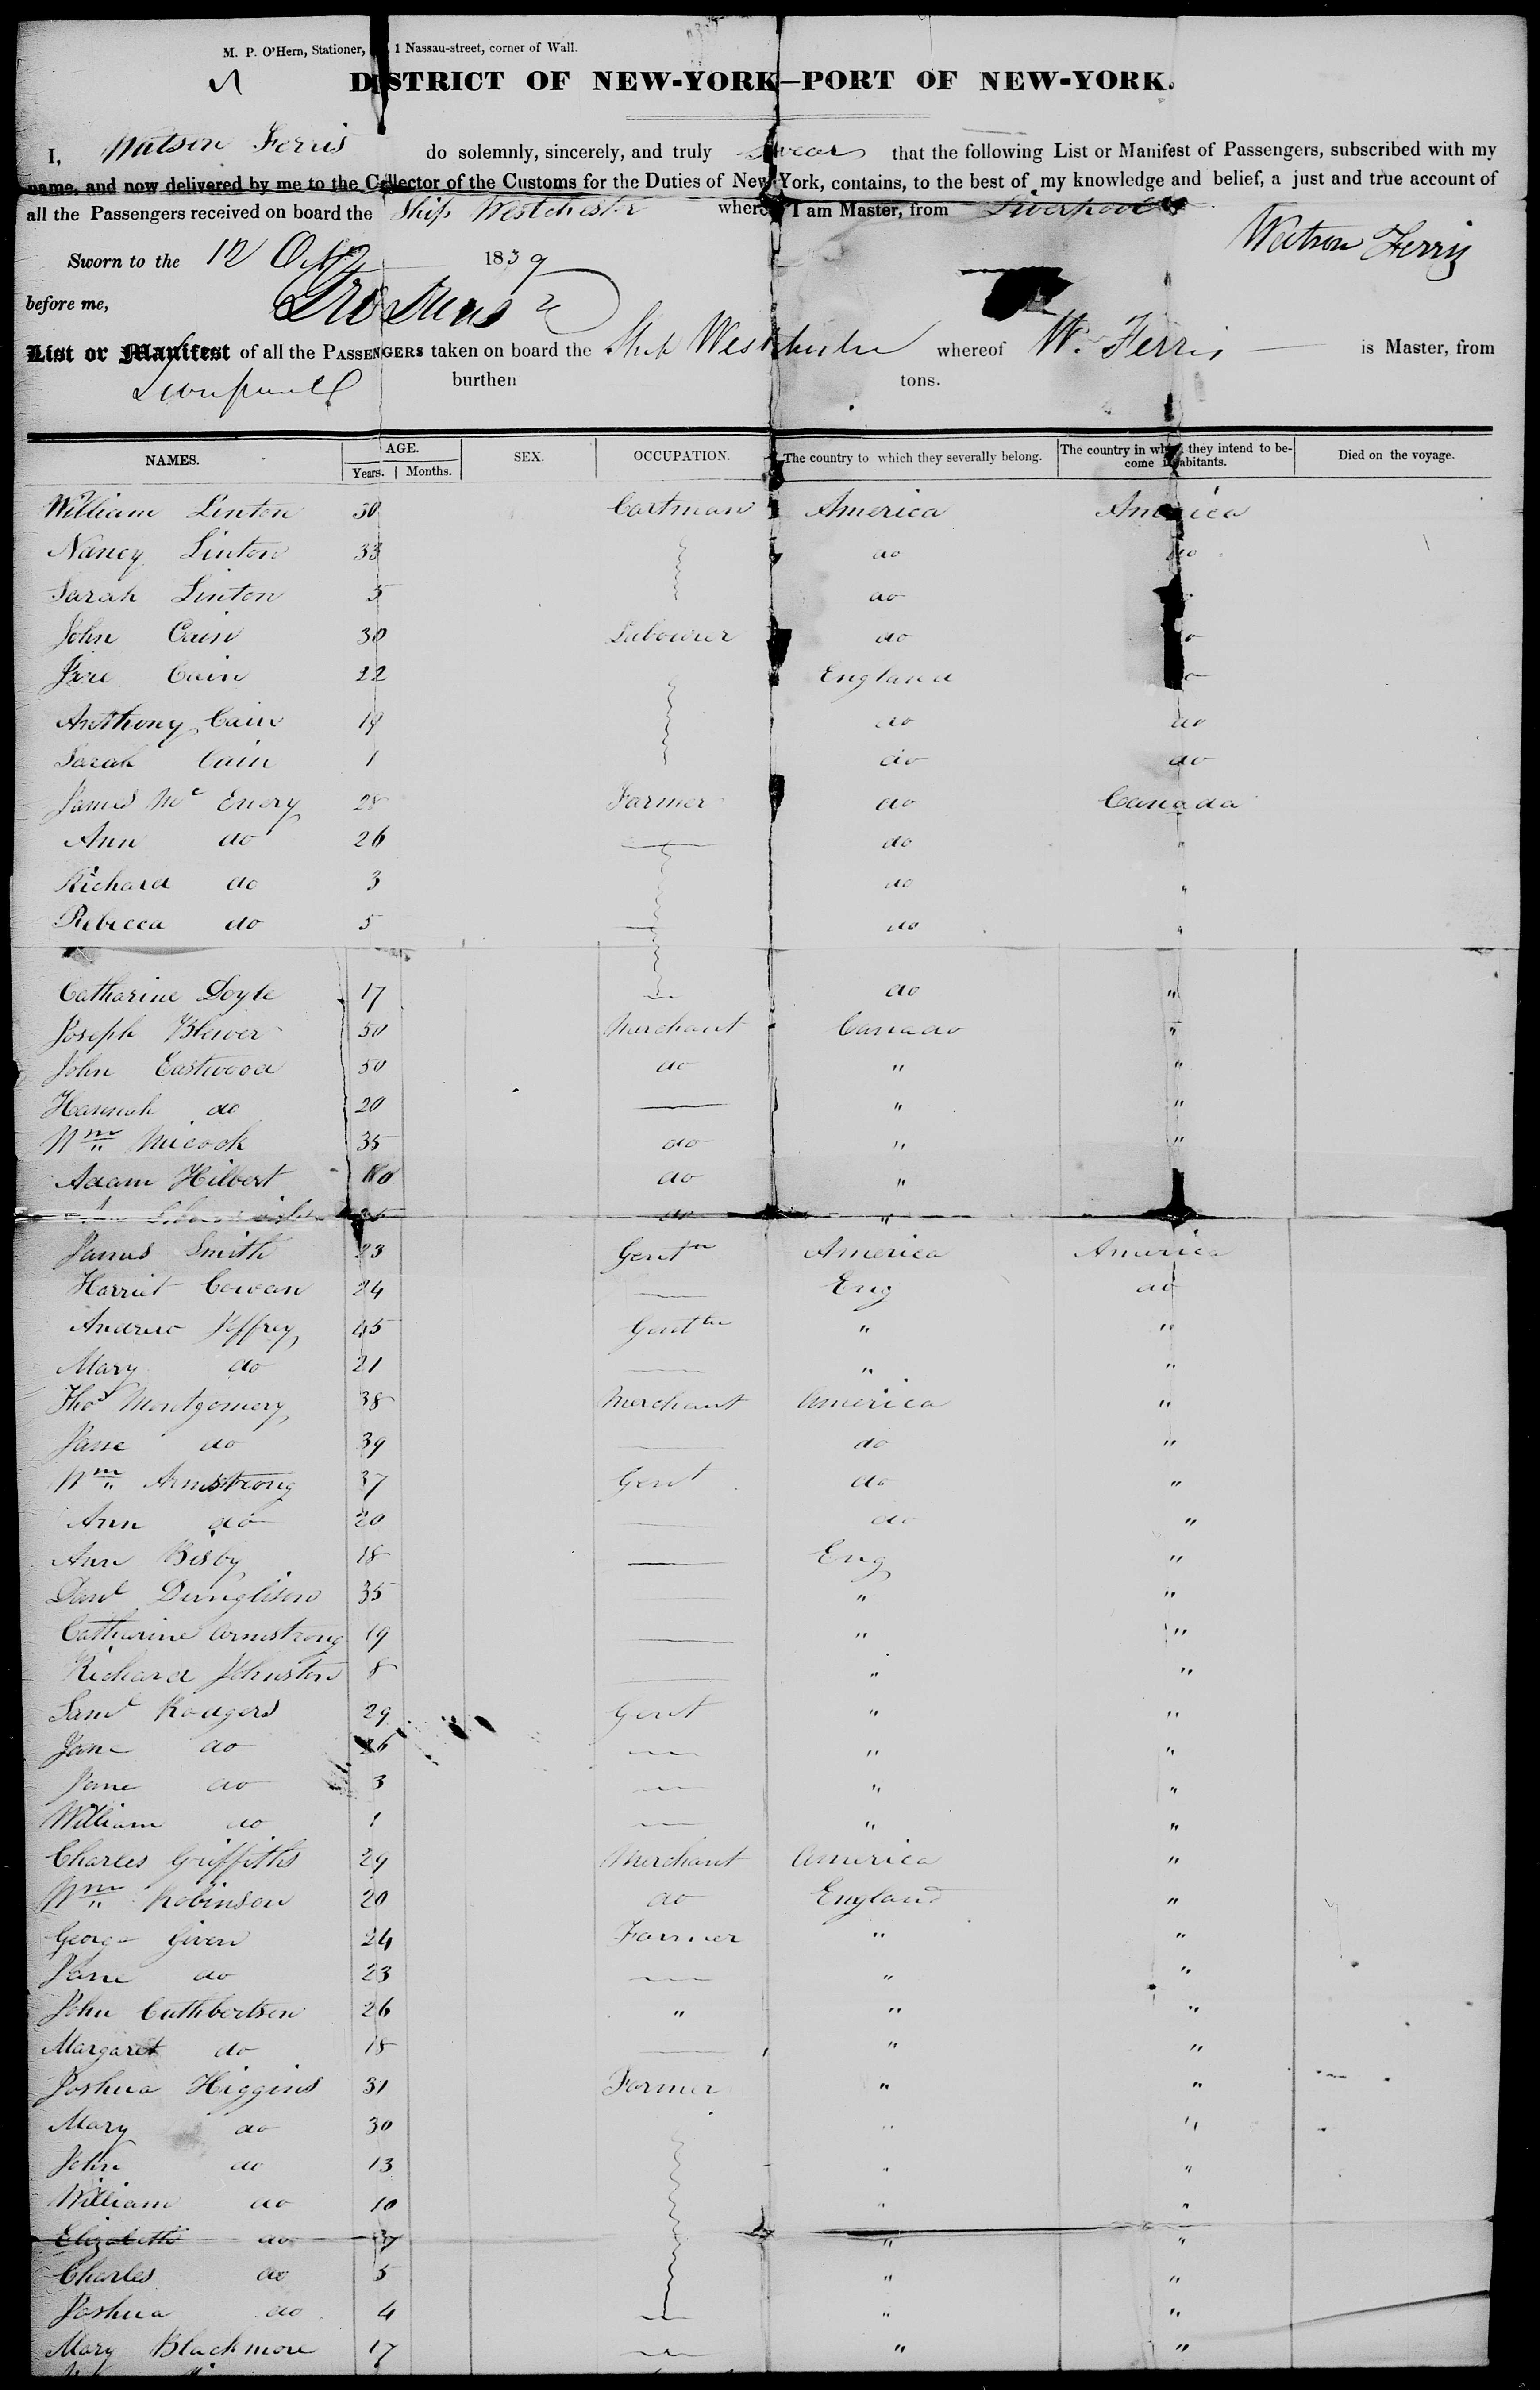 M. P. O'Hern, Stationer, 1 Nassau-street, corner of Wall.
DISTRICT OF NEW-YORK—PORT OF NEW-YORK.
I, Watson Ferris do solemnly, sincerely, and truly swear that the following List or Manifest of Passengers, subscribed with my
name, and now delivered by me to the Collector of the Customs for the Duties of New York, contains, to the best of my knowledge and belief, a just and true account of
all the Passengers received on board the Ship Westchester whereof I am Master, from Liverpool
Watson Ferris
Sworn to the 12 Oct 1839
before me,
List or Manifest of all the PASSENGERS taken on board the Ship Westchester whereof W. Ferris is Master, from
Liverpool burthen tons.
NAMES. AGE. Years. Months. SEX. OCCUPATION. The country to which they severally belong. The country in which they intend to become inhabitants. Died on the voyage.
William Linton 30 Cartman America America
Nancy Linton 33 do do
Sarah Linton 5 do
John Cain 30 Labourer do do
Cain 22 England do
Anthony Cain 19 do do
Sarah Cain 1 do do
James Mc Enery 28 Farmer do Canada
Ann do 26 do "
Richard do 3 do "
Rebecca do 5 do "
Catharine Doyle 17 do "
Joseph Blewer 50 Merchant Canada "
John Eastwood 50 do " "
Hannah do 20 " "
Wm 35 do " "
Adam Hilbert do "
do "
James Smith 23 Gentn America America
Harriet Cowan 24 Eng do
Andrew Jeffrey 45 Gentln " "
Mary do 21 " "
Thos Montgomery 38 Merchant America "
Jane do 39 do "
Wm Armstrong 37 Gent do "
Ann do 20 do "
Ann Bisby 18 Eng "
Danl Dunglison 35 " "
Catharine Armstrong 19 " "
Richard Johnston 8 " "
Saml Rodgers 29 Gent " "
Jane do 26 " "
Jane do 3 " "
William do 1 " "
Charles Griffiths 29 Merchant America "
Wm Robinson 20 do England "
George Given 24 Farmer " "
Jane do 23 " "
John Cuthbertson 26 " " "
Margaret do 18 " "
Joshua Higgins 31 Farmer " "
Mary do 30 " "
John do 13 " "
William do 10 " "
Elizabeth do " "
Charles do 5 " "
Joshua do 4 " "
Mary Blackmore 17 " "